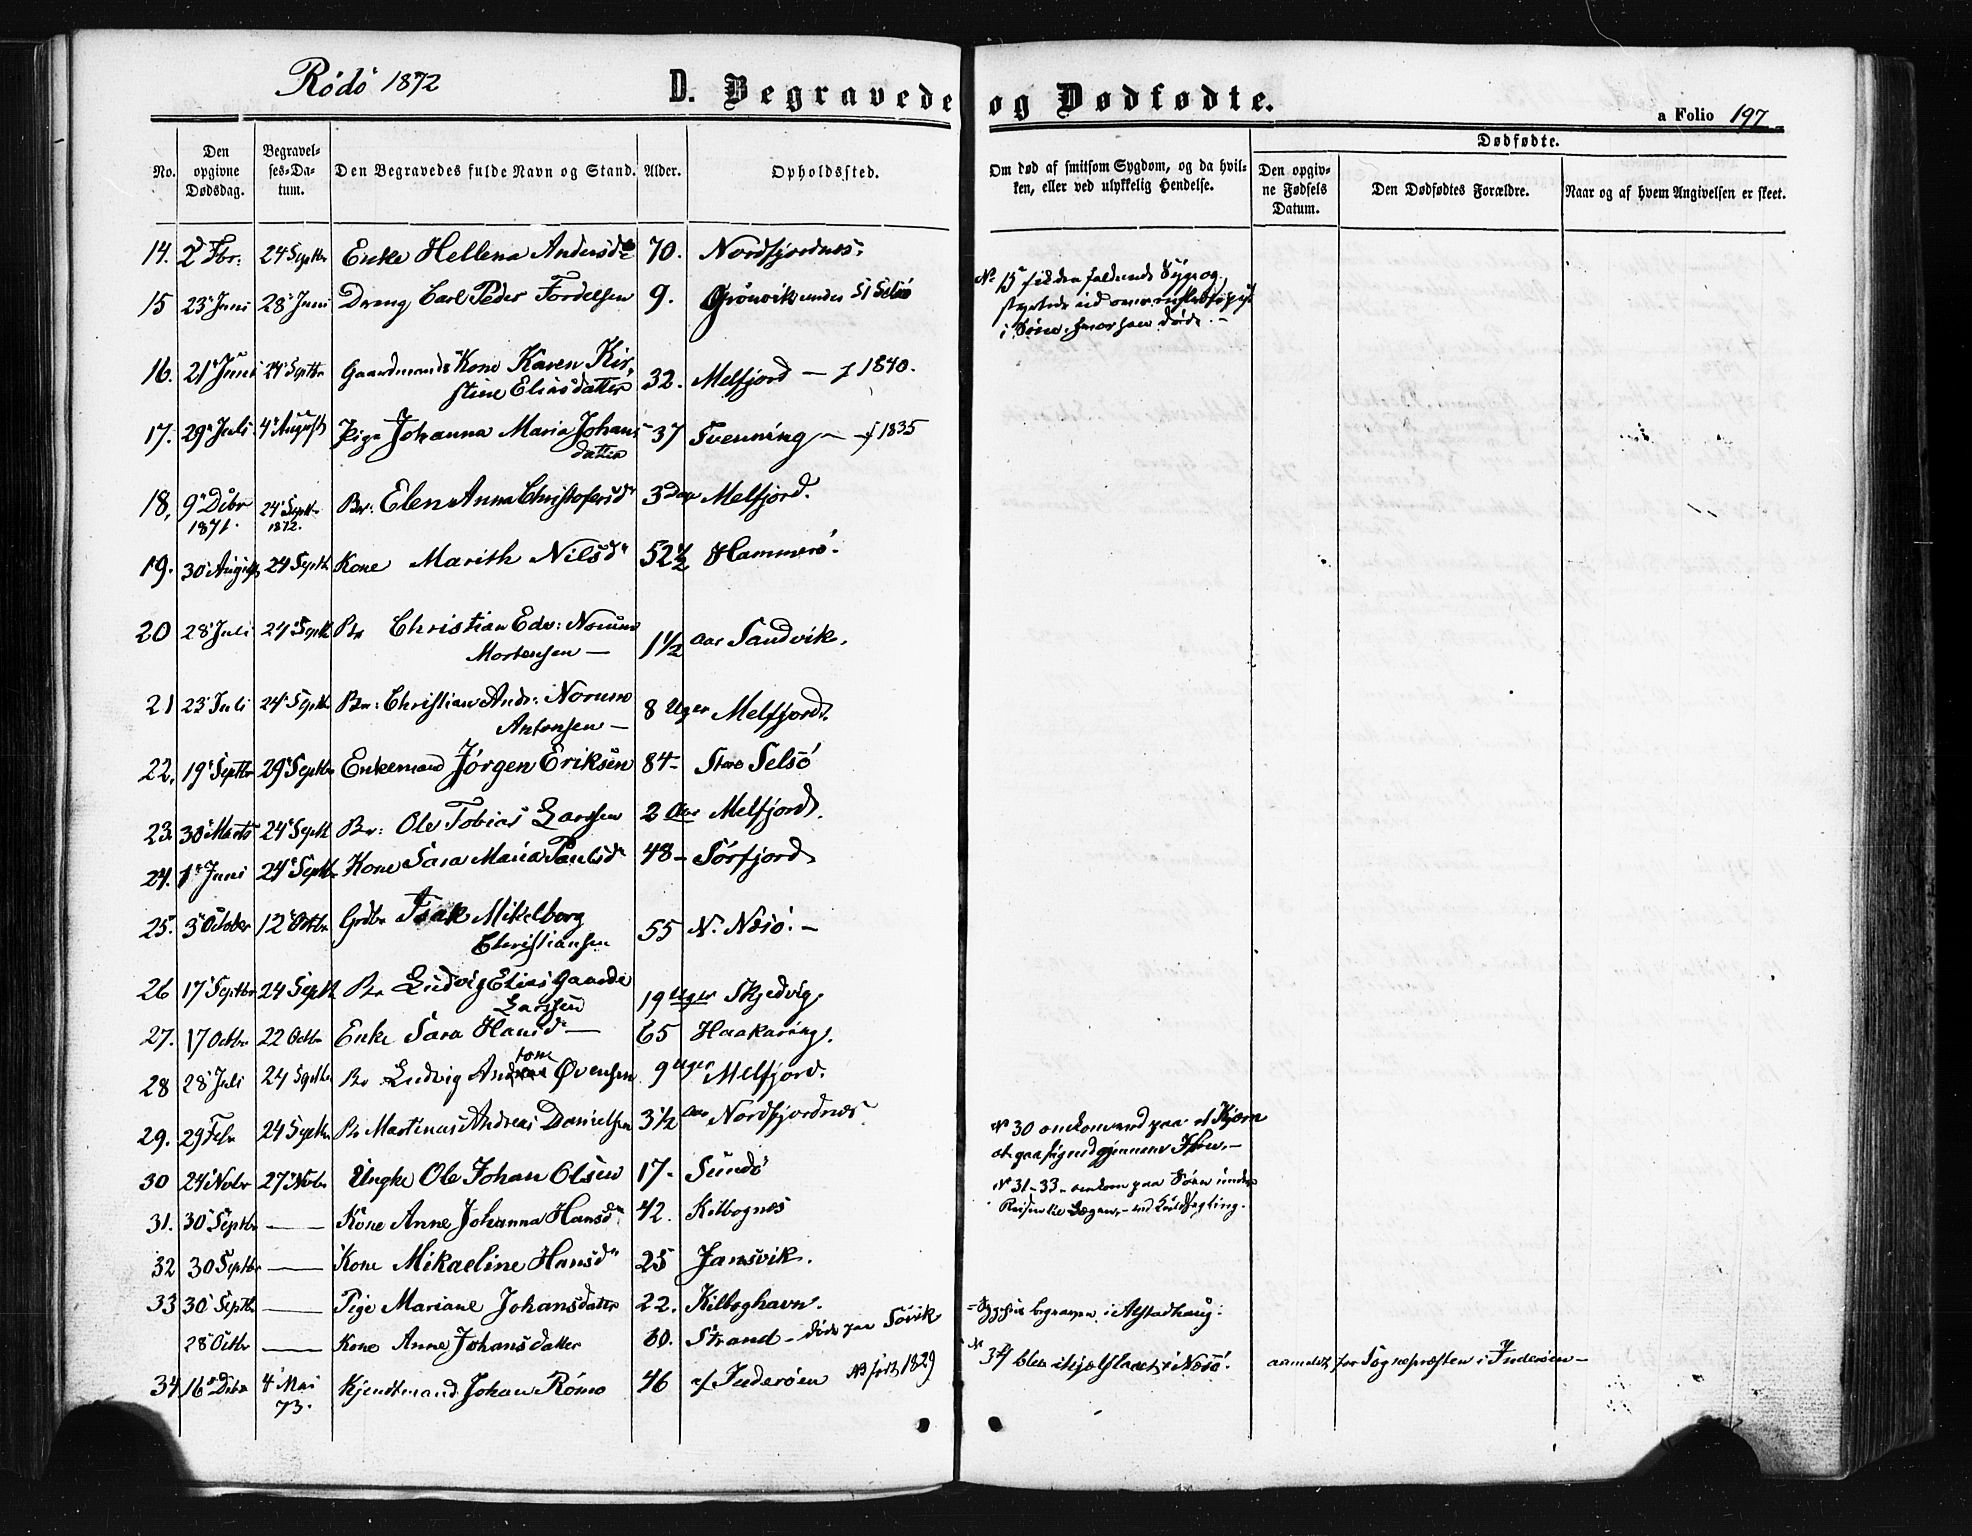 Rödö 1872
D. Begravede og Dødfødte.
a Folio 197
No.
Den opgivne Dødsdag.
Begravelses-Datum.
Den Begravedes fulde Navn og Stand.
Alder.
Opholdssted.
Om død af smitsom Sygdom, og da hvilken, eller ved ulykkelig Hendelse.
Dødfødte.
Den opgivne Fødsels Datum.
Den Dødfødtes Forældre.
Naar og af hvem Angivelsen er skeet.
14. 2 Fbr: 24 Septbr Enke Hellena Andersd. 70. Nordfjordnes.
15 23 Juni 28 Juni Dreng Carl Peder Fordelsen 9. Grönvik under St Selsö
No 15 falden faldende Syge og
styrtede ud over
i Söen, hvor han döde. -
16. 21 Juni 24 Septbr Gaardmands Kone Karen Kir-
stine Eliasdatter 32. Melfjord — f 1840.
17. 29 Juli 4 August Pige Johanna Maria Johans
datter 37 Svenning — f 1835
18, 9 Debr 1871. 24 Septbr 1872. Br: Elen Anna Christofersd 3 Dage Melfjord.
19. 30 August 24 Septb Kone Marith Nilsd 52 1/2 Hammerö.
20 28 Juli 24 Septb Br Christian Edv: Norum
Mortensen — 1 1/2 Aar Sandvik.
21 23 Juli 24 Septb Br: Christian Andr: Norum
Antonsen — 8 Uger Melfjord.
22, 19 Septbr 29 Septbr Enkemand Jörgen Eriksen 84 - Store Selsö
23. 30 Marts 24 Septb Br: Ole Tobias Larssen 2 Aar Melfjord.
24. 1 Juni 24 Septb Kone Sara Maria Paulsd 48 - Sörfjord
25. 3 October 12 Octbr Grdbr Isak Mikelborg
Christiansen 55 N. Næsö. -
26 17 Septbr 24 Septb Br Ludvig Elias Gaarde
Larssen 19 Uger Skjedvig.
27. 17 Octbr 22 Octbr Enke Sara Hansd — 65 Haakaring.
28 28 Juli 24 Septb Br Ludvig Antone Övensen 9 Uger Melfjord.
29. 29 Febr 24 Septbr Br Martinus Andreas Danielsen 3 1/2 Aar Nordfjordnæs
30 24 Novbr 27 Novbr Ungke Ole Johan Olsen 17 - Sundö
No 30 omkom ved paa et Kjern
at gaa igjennem Isen. -
31. 30 Septbr — Kone Anne Johanna Hansd 42. Kilbognes
No 31-33 - omkom paa Söen under
32 30 Septbr — Kone Mikaeline Hansd 25 Jansvik.
33 30 Septb — Pige Mariane Johansdater 22. Kilboghavn.
28 Octbr — Kone Anne Johansdatter 60. Strand - döde paa Sövik
begraven i Alstadhaug.
34 16 Debr 4 Mai 73. Kjendtmand Johan Römo 46 af Inderöen NB födt 1829
No 34 blev ihjelslaaet i Næsö. anmeldt for Sognepræsten i Inderöen -